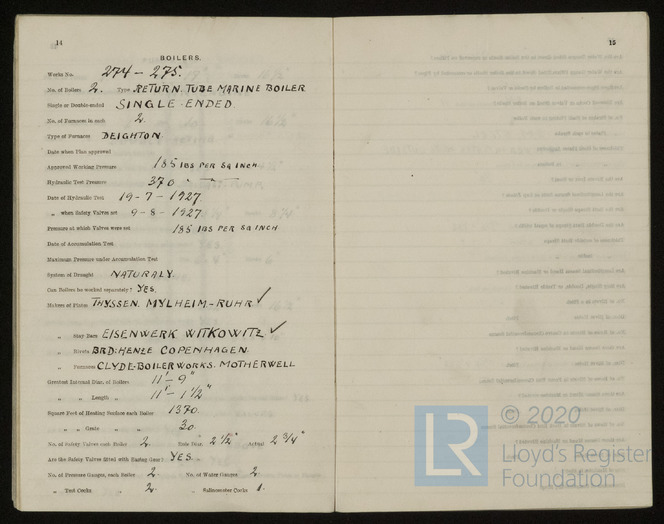 14
BOILERS.
Works No. 274 - 275.
No. of Boilers 2. Type RETURN. TUBE MARINE BOILER
Single or Double-ended SINGLE-ENDED.
No. of Furnaces in each 2.
Type of Furnaces DEIGHTON
Date when Plan approved
Approved Working Pressure 185 lBS PER SQ INCH
Hydraulic Test Pressure 370 " —
Date of Hydraulic Test 19-7-1927.
„ when Safety Valves set 9-8-1927
Pressure at which Valves were set 185 lBS PER SQ INCH
Date of Accumulation Test
Maximum Pressure under Accumulation Test
System of Draught NATURALY
Can Boilers be worked separately? YES.
Makers of Plates THYSSEN. MYLHEIM-RUHR ✓
„ Stay Bars EISENWERK WITKOWITZ ✓
„ Rivets BRD: HENZE COPENHAGEN.
„ Furnaces CLYDE-BOILERWORKS. MOTHERWELL
Greatest Internal Diam. of Boilers 11'-9"
„ „ Length „ 11'-1 1/2"
Square Feet of Heating Surface each Boiler 1370.
„ „ Grate „ „ 30.
No. of Safety Valves each Boiler 2. Rule Diam. 2 1/2" Actual 2 3/4"
Are the Safety Valves fitted with Easing Gear? YES.
No. of Pressure Gauges, each Boiler 2. No. of Water Gauges 2.
„ Test Cocks „ 2. „ Salinometer Cocks 1.
15
LR
© 2020
Lloyd's Register
Foundation